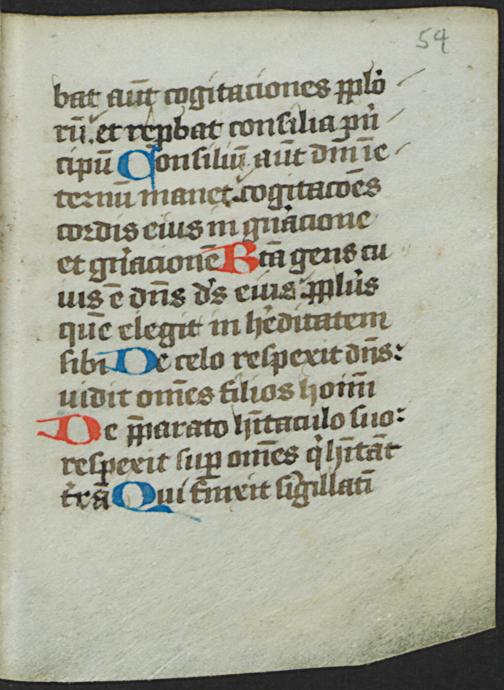 54
bat aūt cogitaciones ꝓplō
rū. et repbat consilia pͥn
cipū Consiliū aūt dn̄i ī e
ternū manet. cogitacōes
cordis eius in gn̄acione
et gn̄acionē Btā gens cu
ius ē dn̄s d's eius: ꝓplūs
quē elegit in hēditatem
sibi De celo respexit dn̄s:
uidit om̄es filios hoīm
De p̄parato hītaculo suo:
respexit suꝑ om̄es q̄ hītāt
t'rā Qui finxit sīgillatī